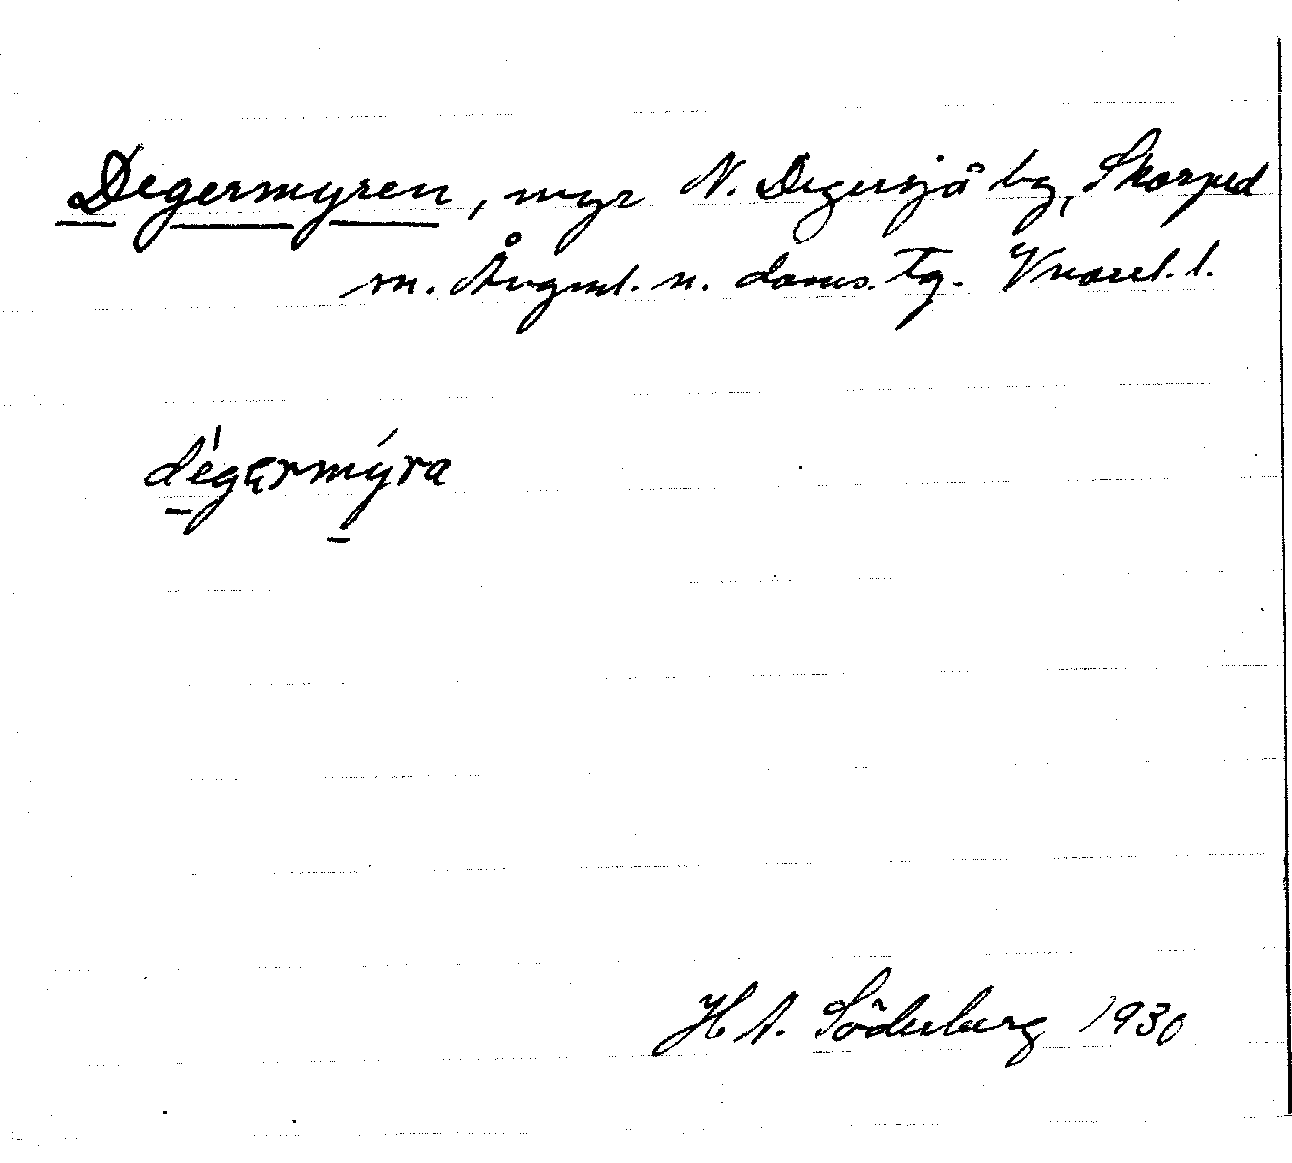 Degermyren, myr N. Degersjö by, Skorped
sn. Ångml. n. doms. Tg. Vnorrl. l.
degərmyra
H A. Söderberg 1930